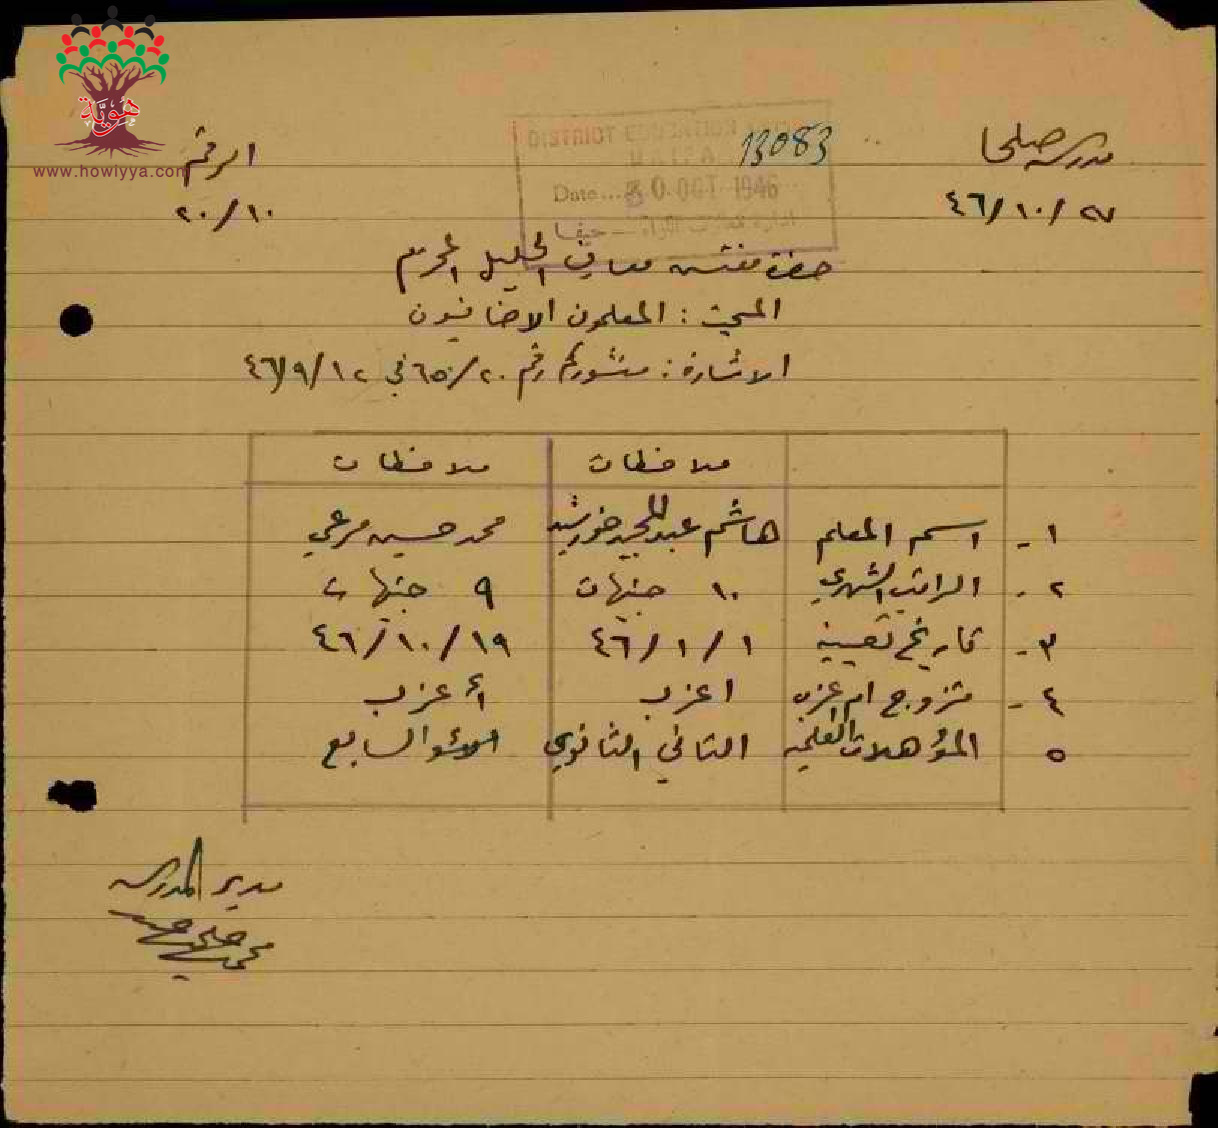 هوية
www.howiyya.com
مدرسة صلحا
الرقم
٢٧/١٠/٤٦
٢٠/١٠
DISTRICT EDUCATION
HAIFA
13083
Date ... 30 OCT 1946
حيفا
حضرة مفتش معارف الجليل المحترم
المبحث : المعلمون الاضافيون
الاشارة : منشوركم رقم ٦٥/٢٠ في ٤٦/٩/١٢
ملاحظات ملاحظات
١- اسم المعلم هاشم عبد المجيد خورشيد محمد حسين مرعي
٢- الراتب الشهري ١٠ جنيهات ٩ جنيهات
٣- تاريخ تعيينه ٤٦/١/١ ٤٦/١٠/١٩
٤- متزوج ام اعزب اعزب أعزب
٥ المؤهلات العلمية الثاني الثانوي السابع
مدير المدرسة
محمد